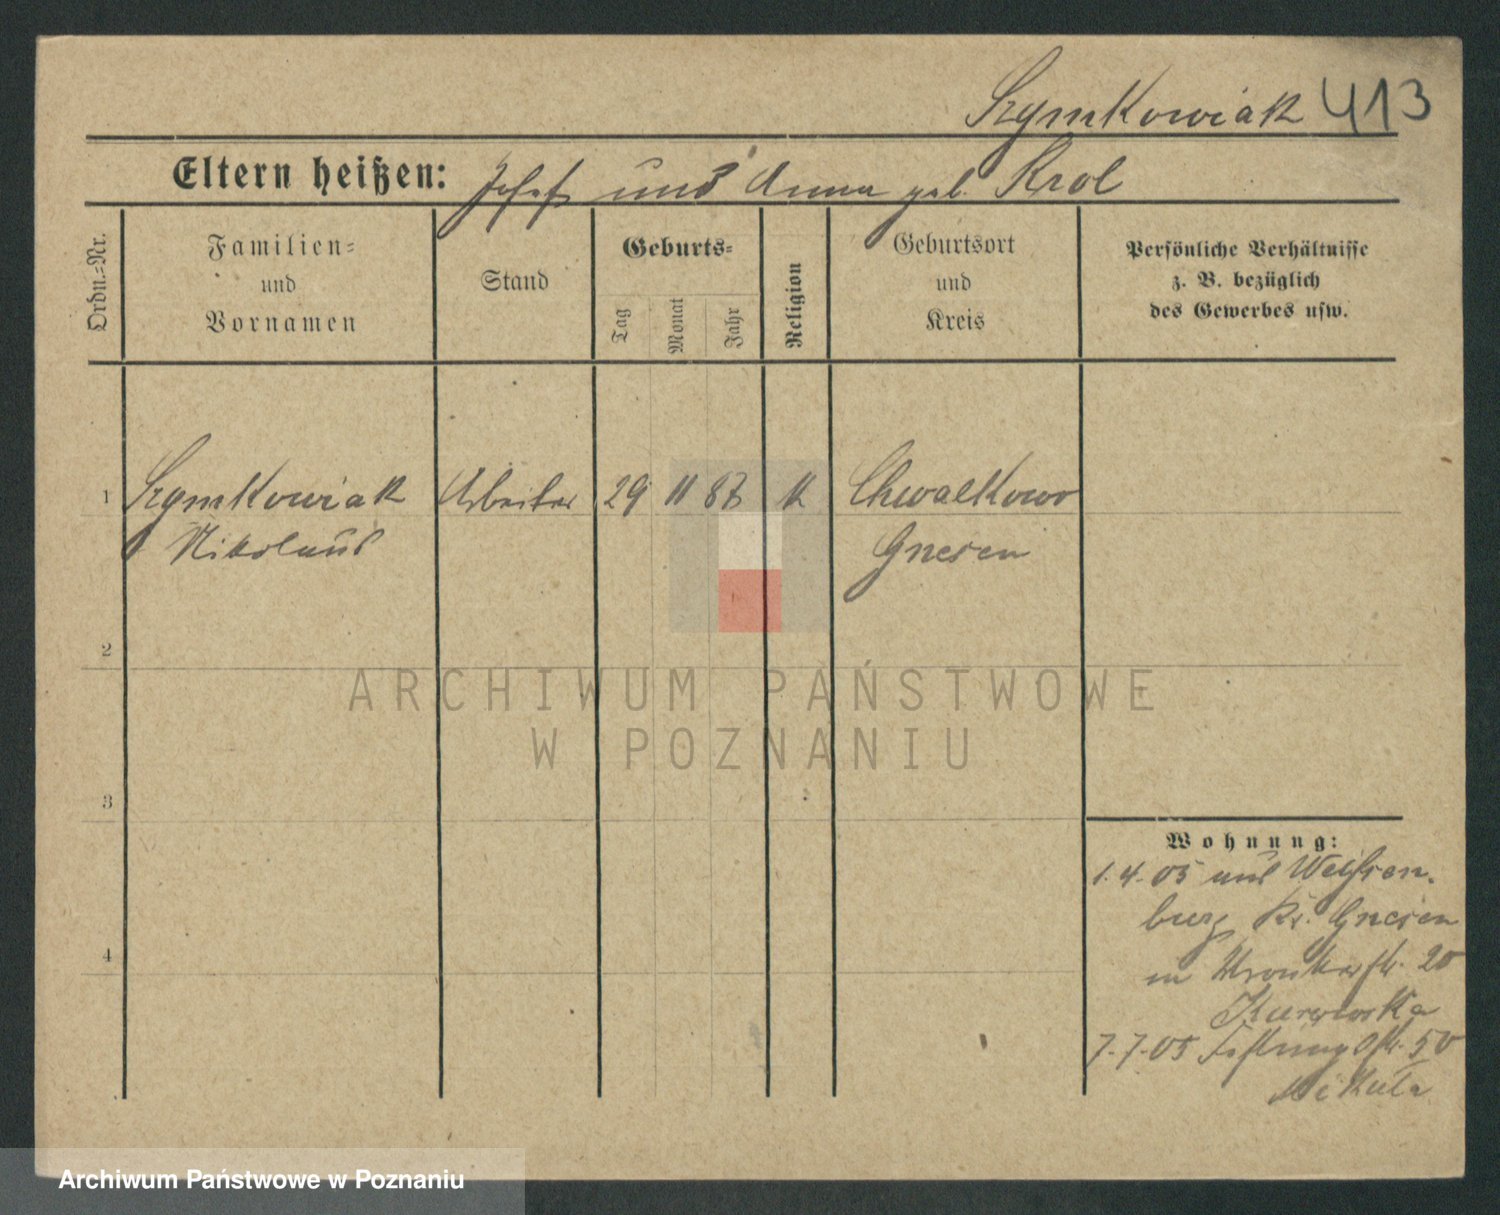 Szymkowiak 413
Eltern heißen: Josef und Anna geb. Krol
Ordn.-Nr.
Familien-
und
Vornamen
Stand
Geburts-
Tag
Monat
Jahr
Religion
Geburtsort
und
Kreis
Persönliche Verhältnisse
z. B. bezüglich
des Gewerbes usw.
1 Szymkowiak Arbeiter 29 11 87 K Chwalkowo
Nikolaus Gnesen
2
3
4
ARCHIWUM PAŃSTWOWE
W POZNANIU
Wohnung:
1.4.05 aus Weißen-
burg Kr. Gnesen
in Wronkerstr. 20
7.7.05 50
Mikula
Archiwum Państwowe w Poznaniu